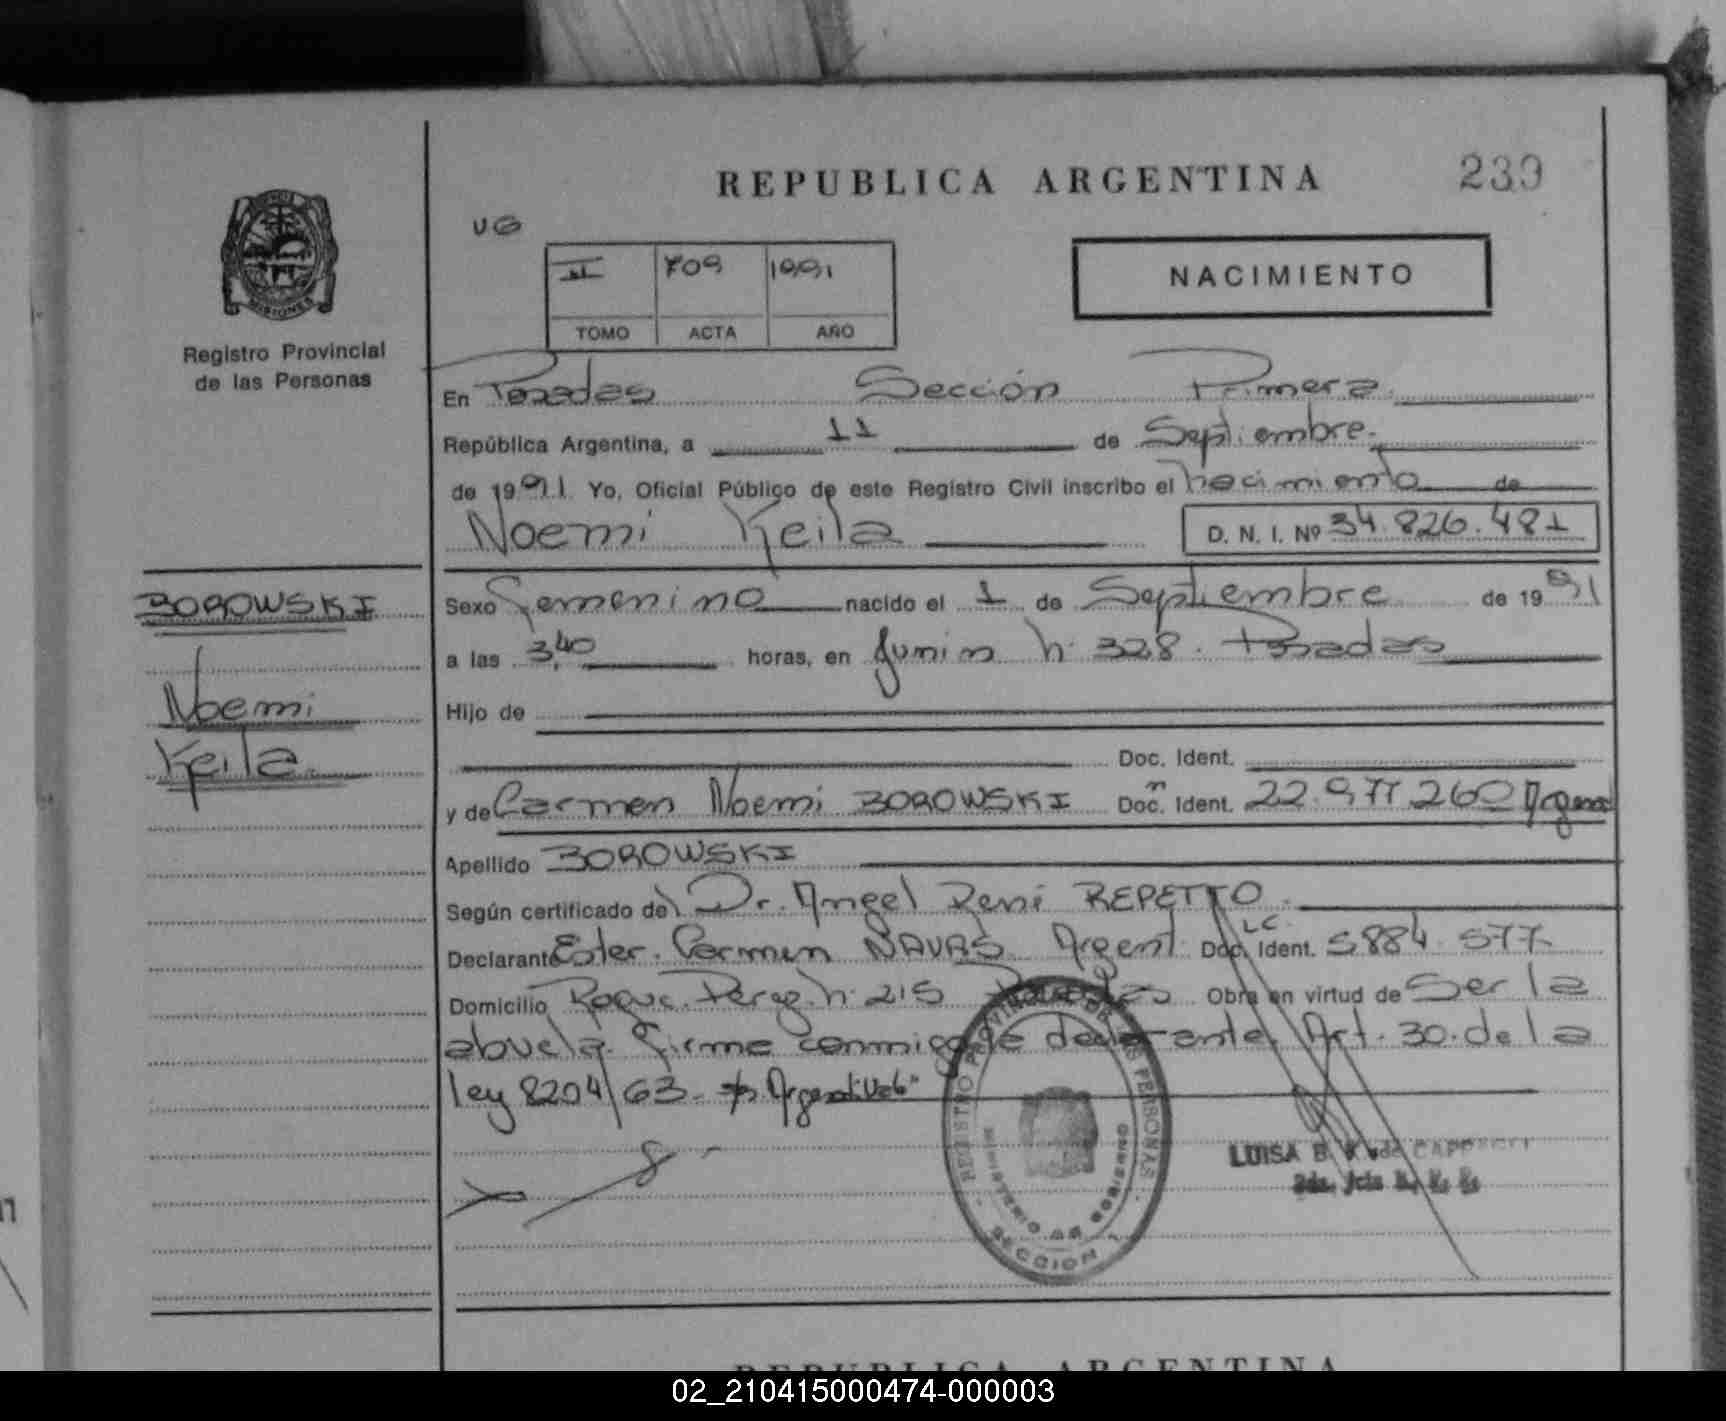 REPUBLICA ARGENTINA
239
UG
II 709 1991
TOMO ACTA AÑO
NACIMIENTO
MISIONES
Registro Provincial
de las Personas
En Posadas Sección Primera
República Argentina, a 11 de Septiembre
de 1991 Yo, Oficial Público de este Registro Civil inscribo el nacimiento de
Noemi Keila
D. N. I. Nº 34.826.481
BOROWSKI
Noemi
Keila
Sexo Femenino nacido el 1 de Septiembre de 1991
a las 3,40 horas, en Junin n. 328. Posadas
Hijo de
Doc. Ident.
y de Carmen Noemi BOROWSKI Doc. Ident. 22.977.260
Apellido BOROWSKI
Según certificado del Dr. Angel René REPETTO
Declarante Ester Carmen NAVAS Argent. L.C. Doc. Ident. 5884.577
Domicilio Roque Perez n. 215 Posadas Obra en virtud de Ser la
abuela. firma conmigo la declarante. Art. 30. de la
ley 8204/63.
REGISTRO PROVINCIAL DE LAS PERSONAS
MINISTERIO DE GOBIERNO
SECCION 1
LUISA B.
REPUBLICA ARGENTINA
02_210415000474-000003